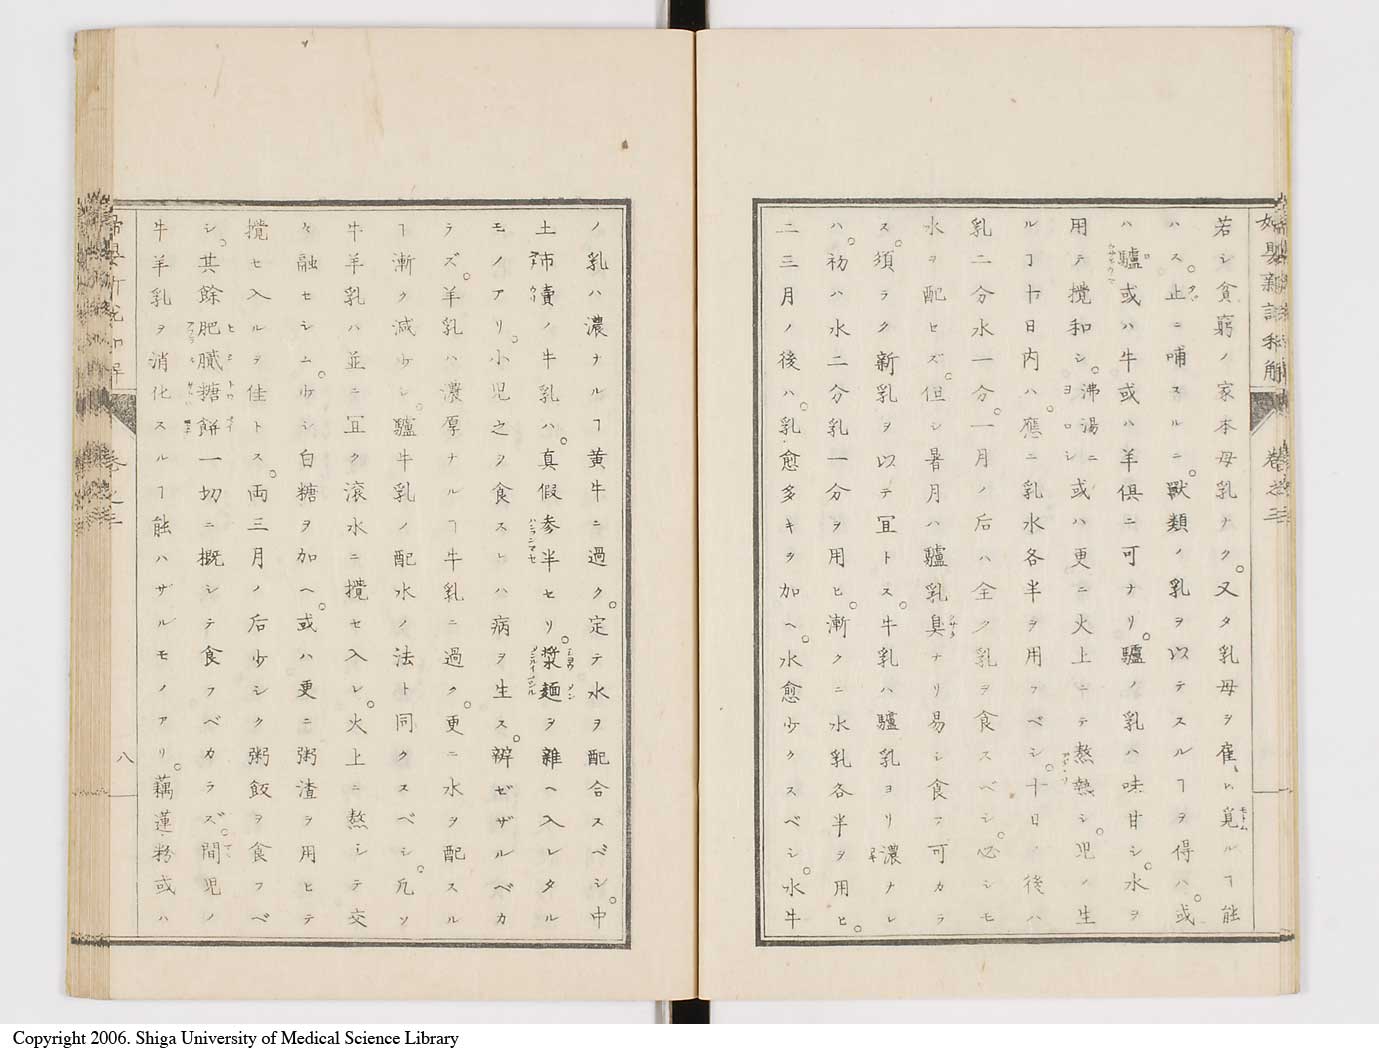 若シ貧窮ノ家本母乳ナク。又タ乳母ヲ雇ヒ覓ルヿ能
ハス。止ニ哺スルニ。獸類ノ乳ヲ以テスルヿヲ得ハ。或
ハ驢或ハ牛或ハ羊倶ニ可ナリ。驢ノ乳ハ味甘シ。水ヲ
用テ攪和シ。沸湯ニヨロシ或ハ更ニ火上ニテ熬熱シ。児ノ生
ルヿ十日内ハ。應ニ乳水各半ヲ用フベシ。十日ノ後ハ
乳二分水一分。一月ノ后ハ全ク乳ヲ食スベシ。必シモ
水ヲ配セズ。但シ暑月ハ驢乳臭ナリ易シ食フ可カラ
ス。須ラク新乳ヲ以テ冝トス。牛乳ハ驢乳ヨリ濃ナレ
ハ。初ハ水二分乳一分ヲ用ヒ。漸クニ水乳各半ヲ用ヒ。
二三月ノ後ハ。乳愈多キヲ加ヘ。水愈少クスベシ。水牛
ノ乳ハ濃ナルヿ黄牛ニ過ク。定テ水ヲ配合スベシ。中
土市賣ノ牛乳ハ。真假参半セリ。漿麺ヲ雜ヘ入レタル
モノアリ。小児之ヲ食スレハ病ヲ生ス。辨ゼザルベカ
ラズ。羊乳ハ濃厚ナルヿ牛乳ニ過ク。更ニ水ヲ配スル
ヿ漸ク減少シ。驢牛乳ノ配水ノ法ト同クスベシ。凡ソ
牛羊乳ハ並ニ冝ク滾水ニ攪セ入レ。火上ニ熬シテ交
々融セシム。少シ白糖ヲ加ヘ。或ハ更ニ粥渣ヲ用ヒテ
攪セ入ルヲ佳トス。両三月ノ后少シク粥飯ヲ食フベ
シ。其餘肥膩糖餅一切ニ概シテ食フベカラズ。間児ノ
牛羊乳ヲ消化スルヿ能ハザルモノアリ。藕蓮粉或ハ
八
Copyright 2006. Shiga University of Medical Science Library